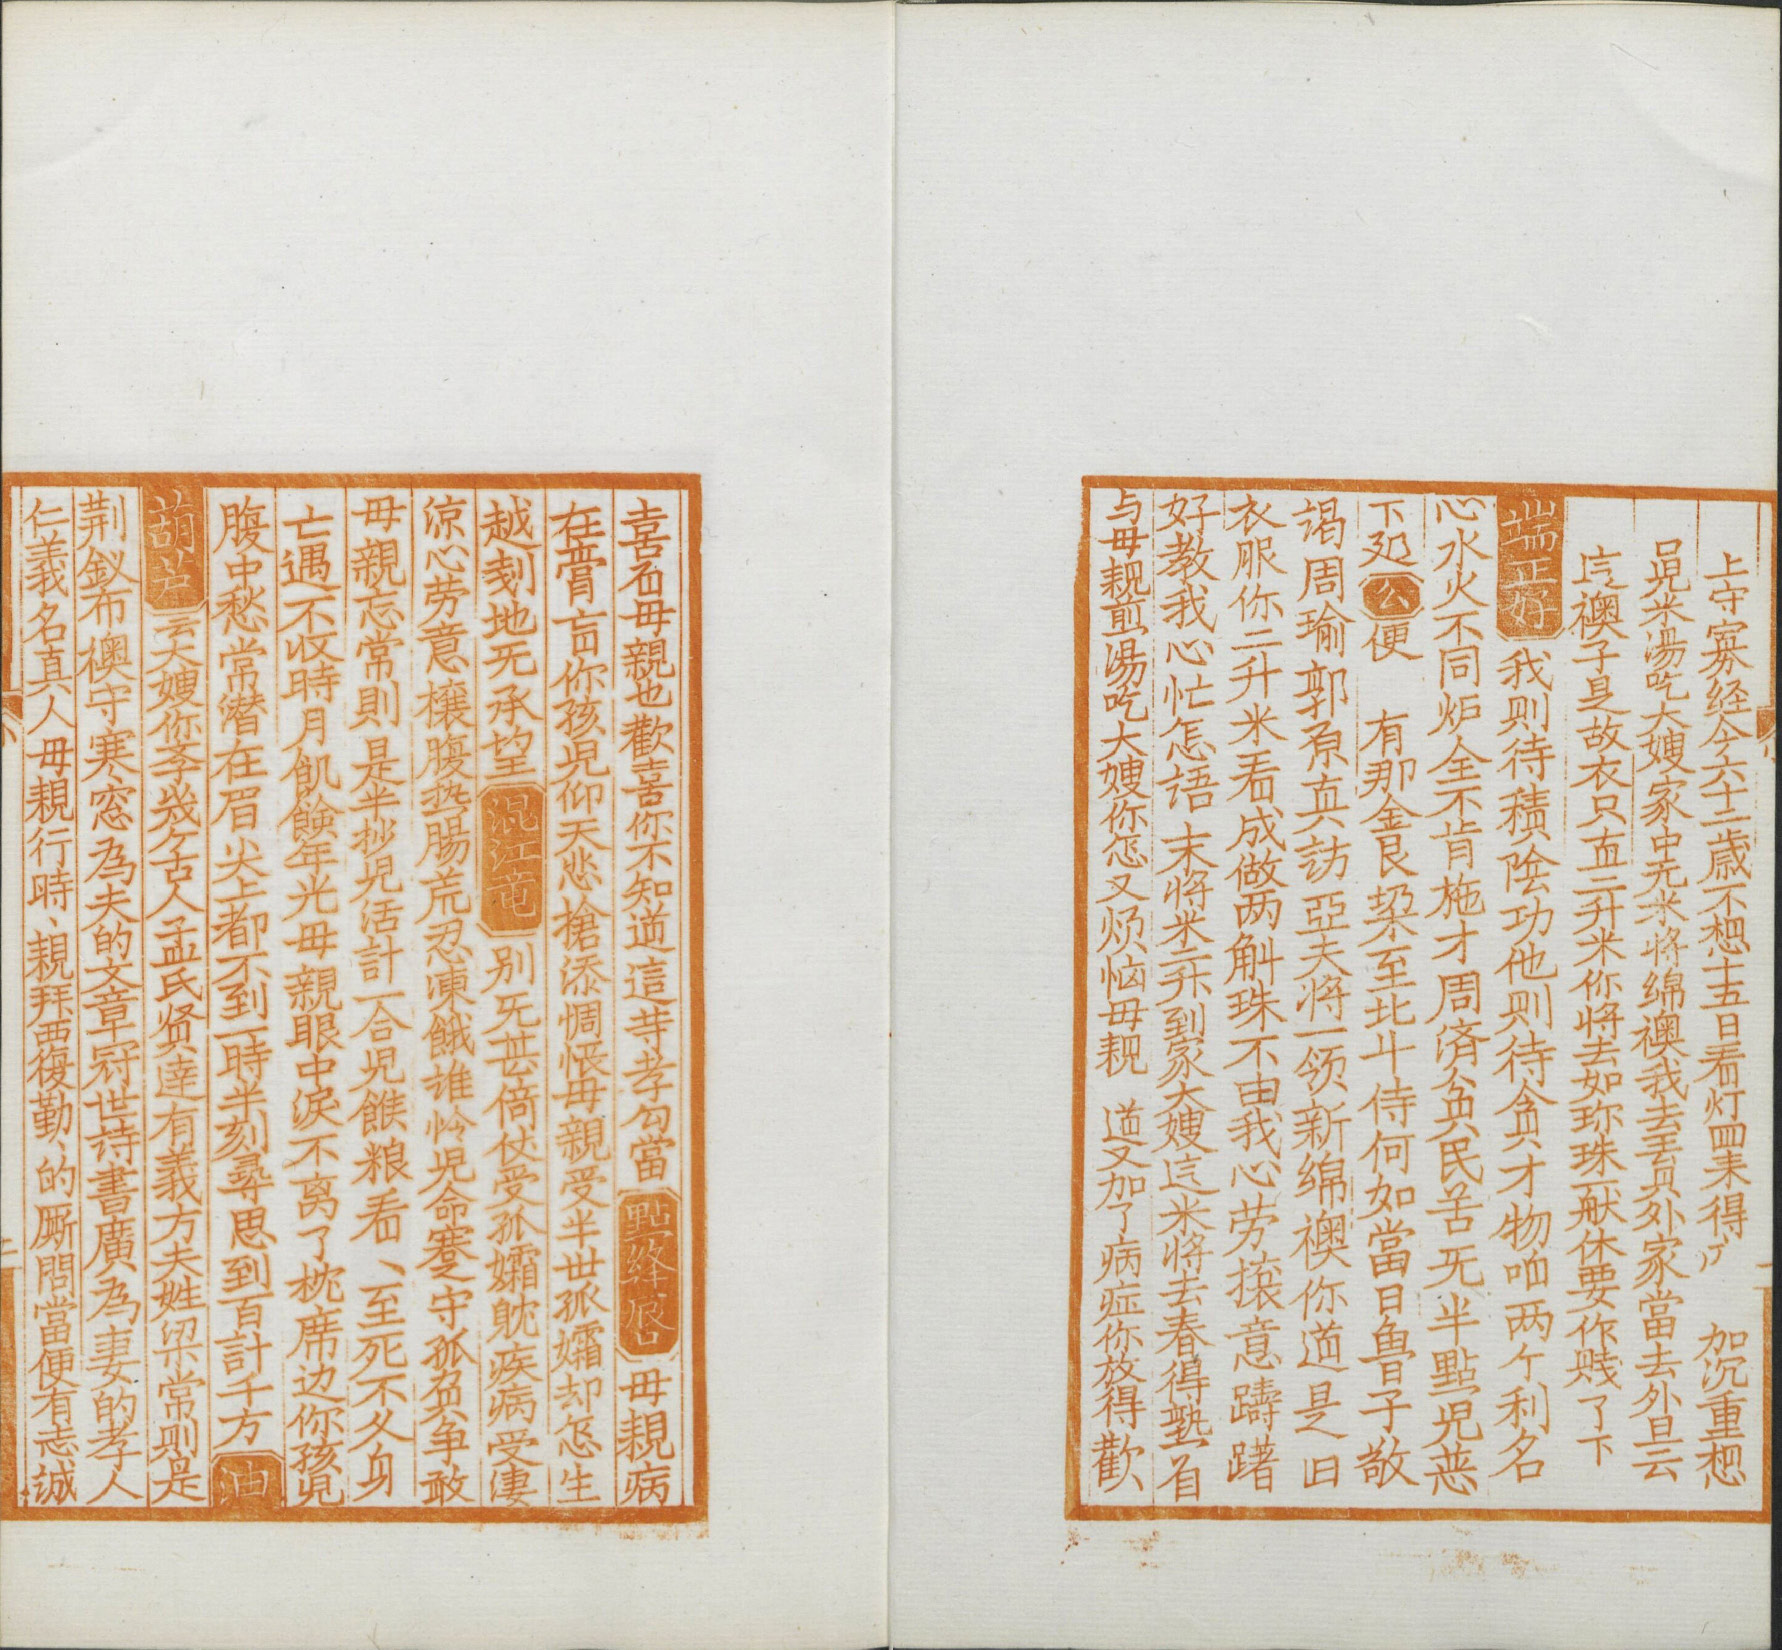 上守寡经今六十二歳不想十五日看灯四来得疒 加沉重想
見米湯吃大嫂家中无米将绵襖我去王員外家當去外旦云
这襖子是故衣只直二升米你将去如珎珠一般休要作贱了下
端正好 我则待積隂功他则待貪才物咱两个利名
心水火不同炉全不肯施才周済貧民苦无半點児悪
下 公 便 有那金艮 至北斗侍何如當日魯子敬
謁周瑜郭原真訪亞夫将一领新绵襖你道是旧
衣服你二升米看成做两斛珠不由我心劳攘意躊躇
好教我心忙怎語 末将米二升到家大嫂这米将去舂得熟旨
与毋親煎湯吃大嫂你怎又烦恼毋親 道又加了病症你放得歡
喜石毋親也歡喜你不知道這䓁孝勾當 點絳唇 毋親病
在膏肓你孩児仰天悲愴添惆悵毋親受半世孤孀却怎生
越刼地无承望 混江竜 别无甚倚仗受孤孀躭疾病受凄
涼心劳意攘腹热腸荒忍凍餓誰怜児命蹇守孤貧争敢
毋親忘常則是半抄児活計一合児餱粮看、至死不久身
亡遇不收時月飢餘年光毋親眼中淚不离了枕席边你孩児
腹中愁常潜在眉尖上都不到一時半刻尋思到百計千方 油
葫芦 云大嫂你孝㡬个古人孟氏贤達有義方夫姓梁常則是
荆釵布襖守寒窓為夫的文章冠世詩書廣為妻的孝人
仁義名真人毋親行時、親拜覆勤、的厮問當便有志誠